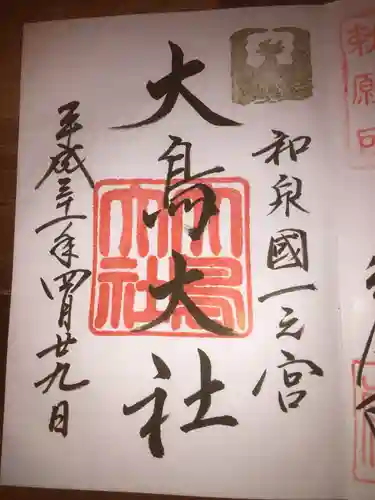 和泉國一之宮
大鳥大社
平成三十一年四月廿九日
大鳥大社